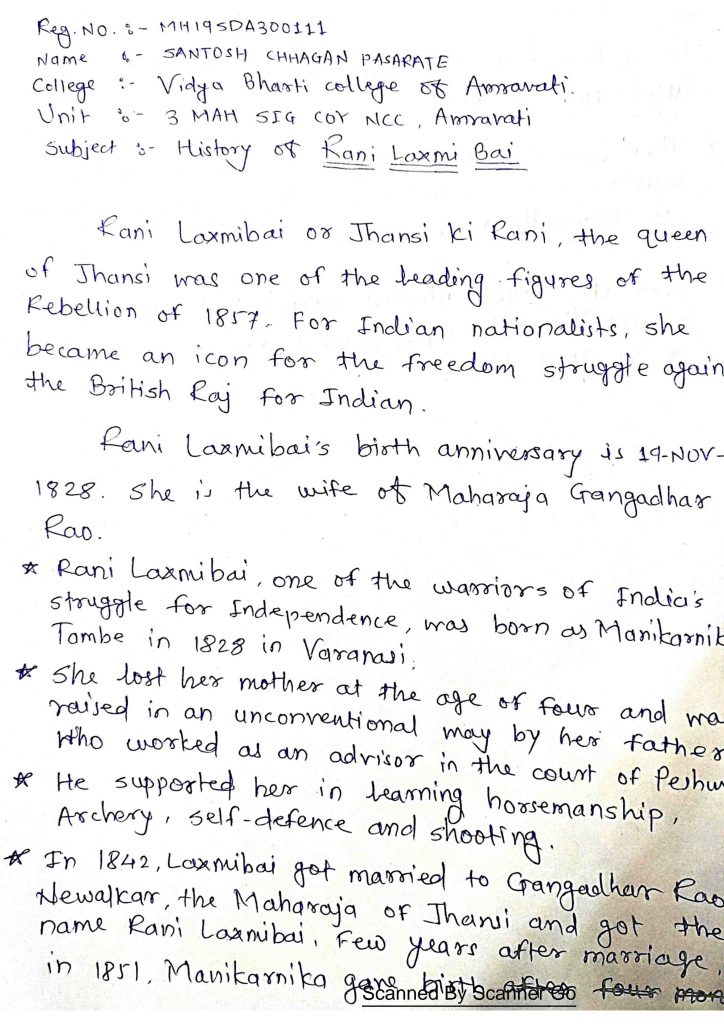 Reg. NO. :- MH19SDA300111
Name :- SANTOSH CHHAGAN PASARATE
College :- Vidya Bharti college of Amravati.
Unit :- 3 MAH SIG COY NCC, Amravati
Subject :- History of Rani Laxmi Bai
Rani Laxmibai or Jhansi ki Rani, the queen
of Jhansi was one of the leading figures of the
Rebellion of 1857. For Indian nationalists, she
became an icon for the freedom struggle again
the British Raj for Indian.
Rani Laxmibai's birth anniversary is 19-NOV-
1828. She is the wife of Maharaja Gangadhar
Rao.
* Rani Laxmibai, one of the warriors of India's
struggle for Independence, was born as Manikarnik
Tambe in 1828 in Varanasi.
* She lost her mother at the age of four and wa
raised in an unconventional way by her father
who worked as an advisor in the court of Peshw
* He supported her in learning horsemanship,
Archery, self-defence and shooting.
* In 1842, Laxmibai got married to Gangadhar Rao
Newalkar, the Maharaja of Jhansi and got the
name Rani Laxmibai. Few years after marriage,
in 1851, Manikarnika gave birth after four mon
Scanned By Scanner Go